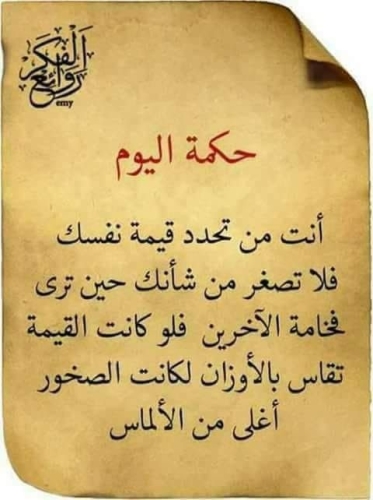 روائع الفكر
emy
حكمة اليوم
أنت من تحدد قيمة نفسك
فلا تصغر من شأنك حين ترى
فخامة الآخرين فلو كانت القيمة
تقاس بالأوزان لكانت الصخور
أغلى من الألماس